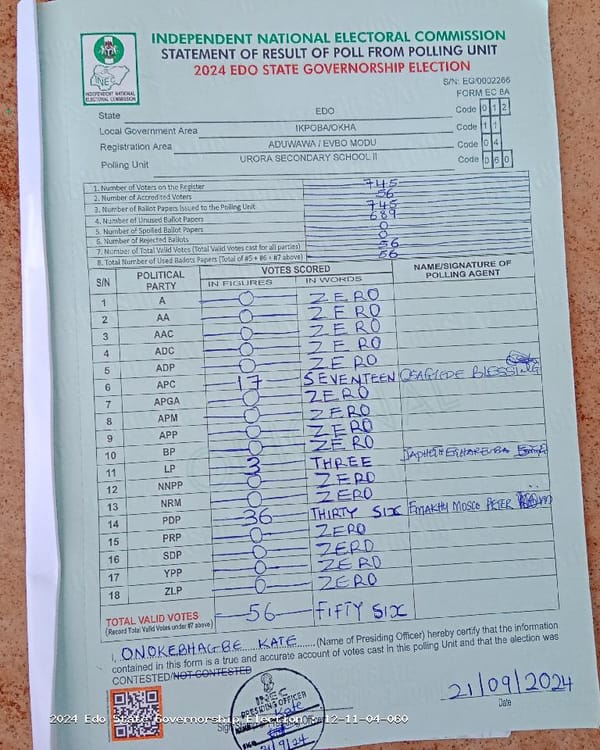 INDEPENDENT NATIONAL ELECTORAL COMMISSION
STATEMENT OF RESULT OF POLL FROM POLLING UNIT
2024 EDO STATE GOVERNORSHIP ELECTION
INEC
INDEPENDENT NATIONAL
ELECTORAL COMMISSION
S/N: EG/0002266
FORM EC 8A
State EDO Code 0 1 2
Local Government Area IKPOBA/OKHA Code 1 1
Registration Area ADUWAWA / EVBO MODU Code 0 4
Polling Unit URORA SECONDARY SCHOOL II Code 0 6 0
1. Number of Voters on the Register 745
2. Number of Accredited Voters 56
3. Number of Ballot Papers Issued to the Polling Unit 745
4. Number of Unused Ballot Papers 689
5. Number of Spoiled Ballot Papers 0
6. Number of Rejected Ballots 0
7. Number of Total Valid Votes (Total Valid Votes cast for all parties) 56
8. Total Number of Used Ballots Papers (Total of #5 + #6 + #7 above) 56
S/N POLITICAL PARTY VOTES SCORED NAME/SIGNATURE OF POLLING AGENT
IN FIGURES IN WORDS
1 A 0 ZERO
2 AA 0 ZERO
3 AAC 0 ZERO
4 ADC 0 ZERO
5 ADP 0 ZERO
6 APC 17 SEVENTEEN BLESSING
7 APGA 0 ZERO
8 APM 0 ZERO
9 APP 0 ZERO
10 BP 0 ZERO
11 LP 3 THREE
12 NNPP 0 ZERO
13 NRM 0 ZERO
14 PDP 36 THIRTY SIX PETER
15 PRP 0 ZERO
16 SDP 0 ZERO
17 YPP 0 ZERO
18 ZLP 0 ZERO
TOTAL VALID VOTES 56 FIFTY SIX
(Record Total Valid Votes under #7 above)
I, ONOKEBHAGBE KATE (Name of Presiding Officer) hereby certify that the information
contained in this form is a true and accurate account of votes cast in this polling Unit and that the election was
CONTESTED/NOT CONTESTED
INEC
PRESIDING OFFICER
Kate
21/9/24
21/09/2024
Date
2024 Edo State Governorship Election - 12-11-04-060